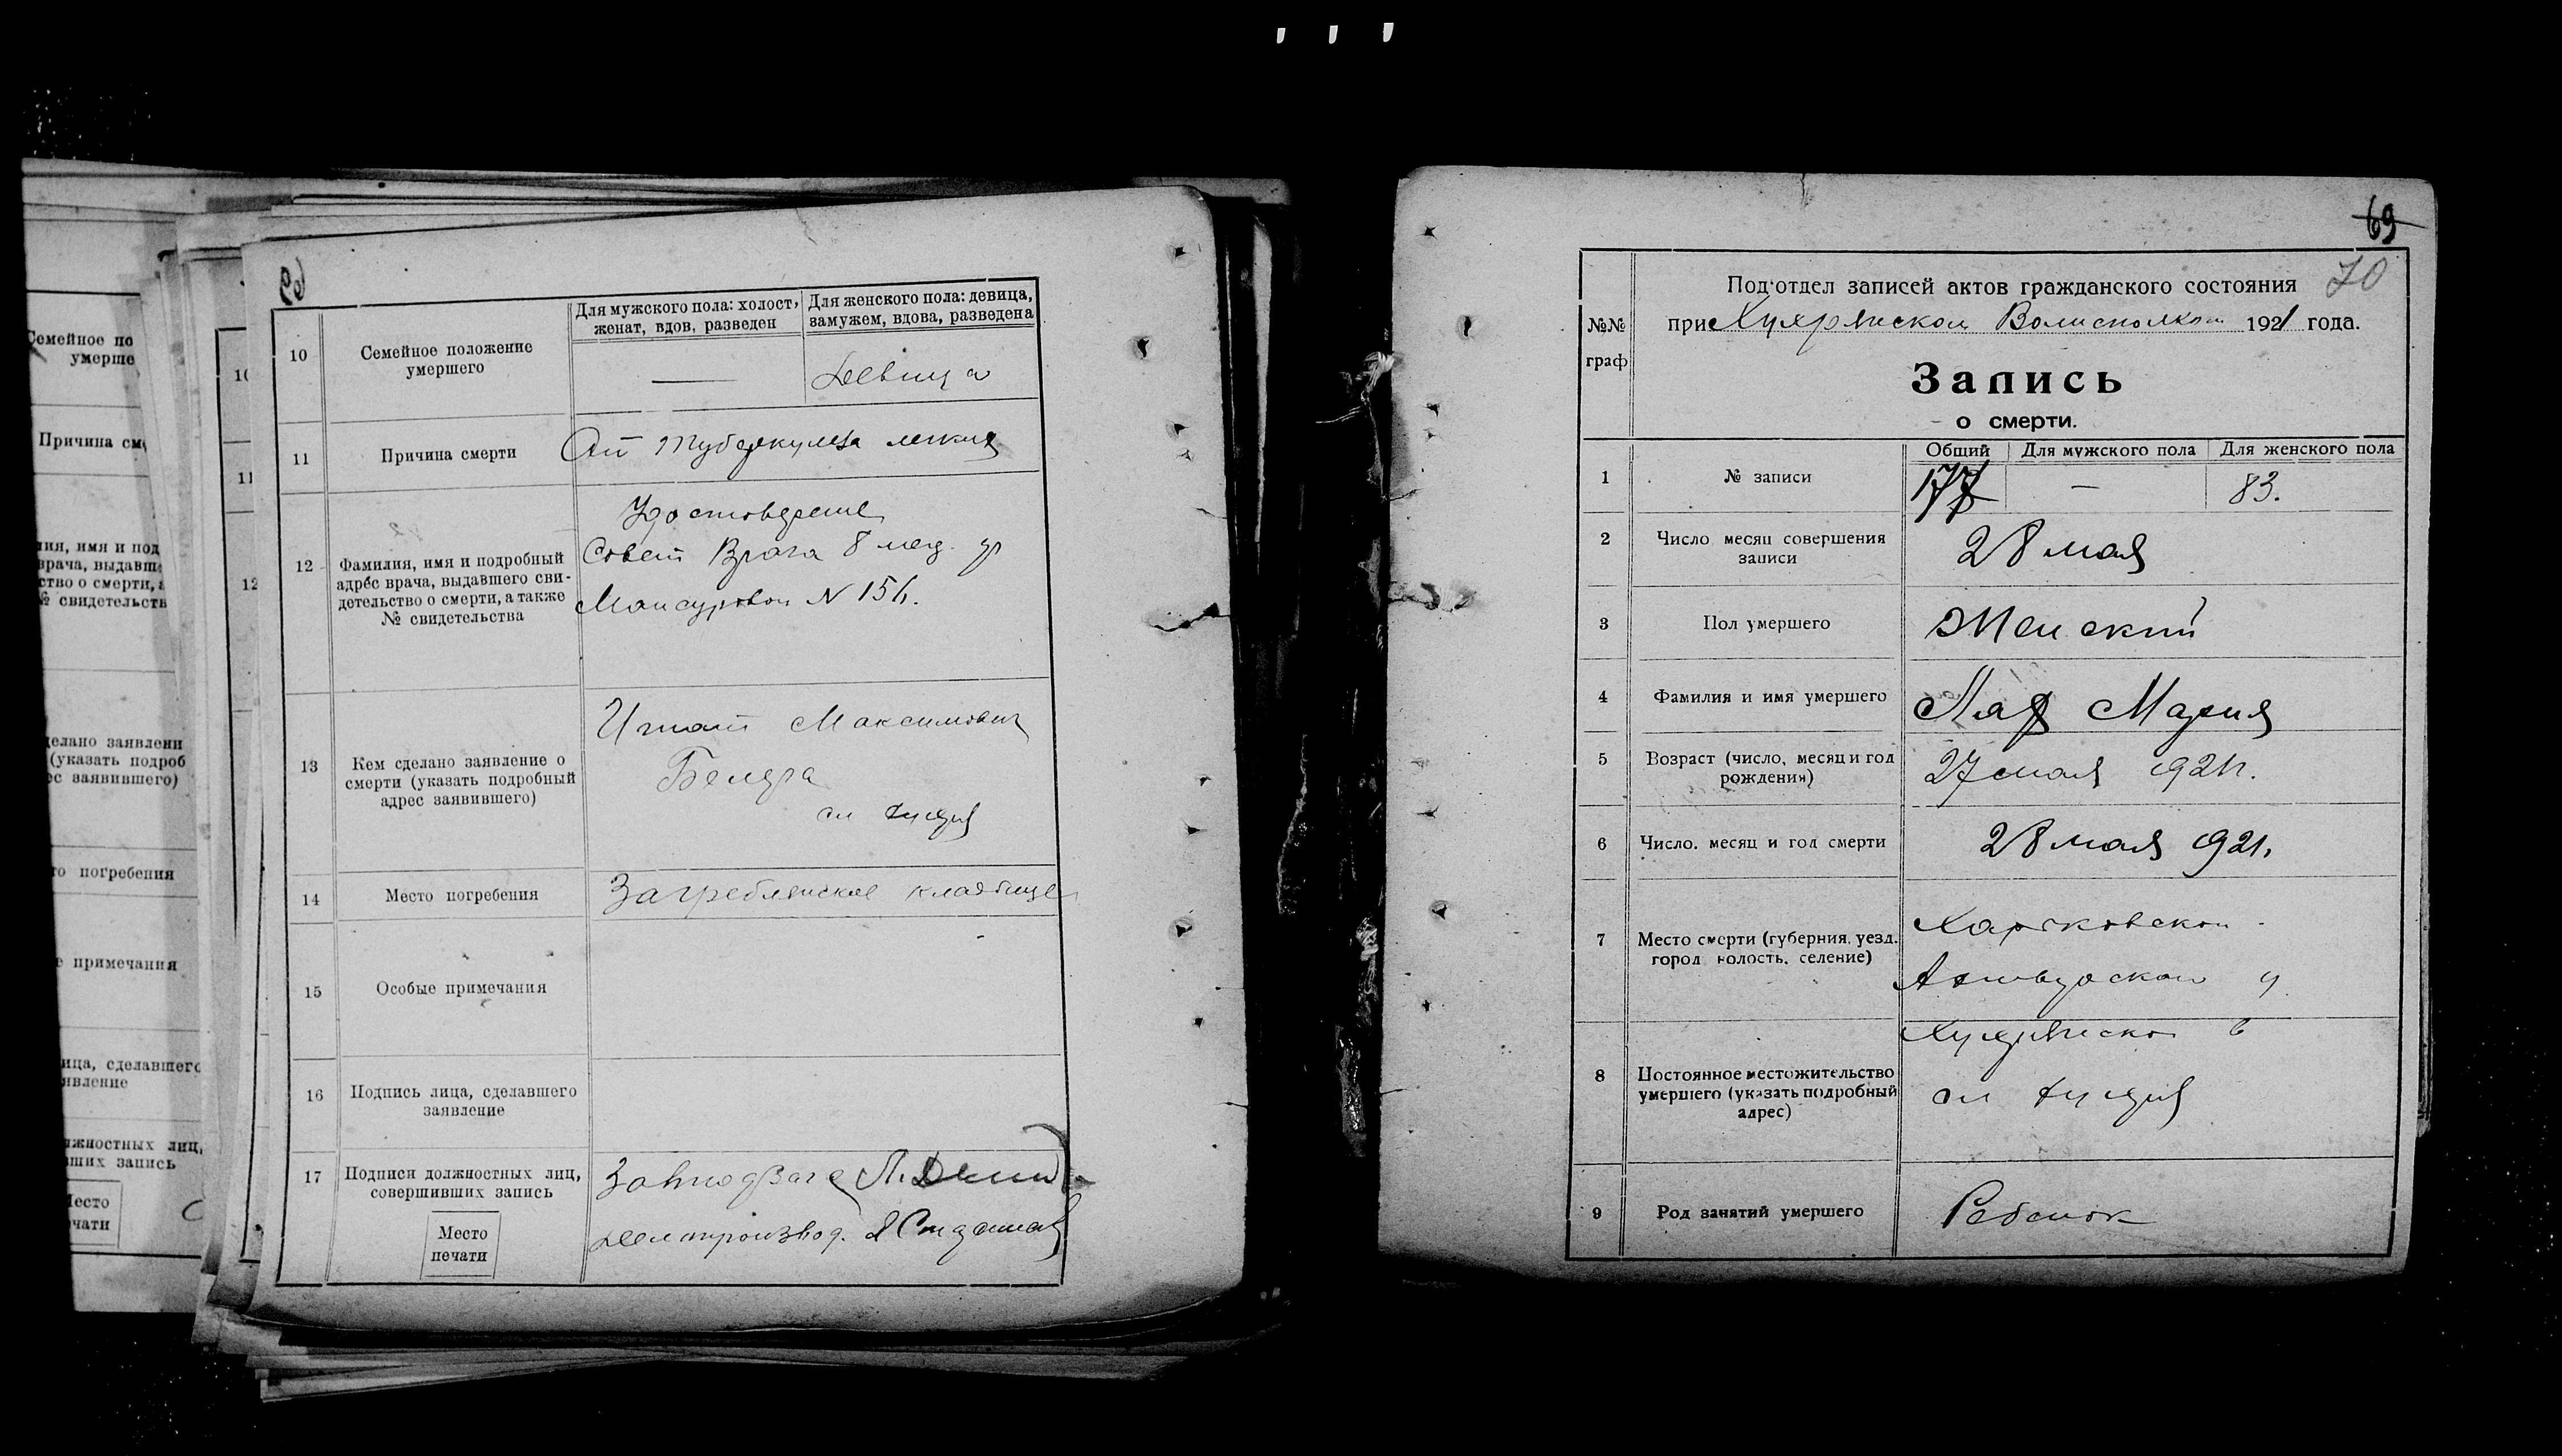 69
10
Семейное положение
умершего
Для мужского пола: холост,
женат, вдов, разведен
Для женского пола: девица,
замужем, вдова, разведена
—
Девица
11
Причина смерти
От туберкулеза легких
12
Фамилия, имя и подробный
адрес врача, выдавшего сви-
детельство о смерти, а также
№ свидетельства
Врача 8 мед. у
N 156.
13
Кем сделано заявление о
смерти (указать подробный
адрес заявившего)
Игнат Максимович
сл
14
Место погребения
Загреблянское кладбище
15
Особые примечания
16
Подпись лица, сделавшего
заявление
17
Подписи должностных лиц,
совершивших запись
Место
печати
Делопроизвод.
Семейное по
умерше
Причина см
ния, имя и под
врача, выдавш
ство о смерти, а
№ свидетельств
делано заявлени
(указать подроб
ес заявившего)
то погребения
е примечания
ица, сделавшего
явление
лжностных лиц,
вших запись
Место
ечати
10
11
12
69
70
№№
граф
Под'отдел записей актов гражданского состояния
при Волисполком 1921 года.
Запись
о смерти.
1
№ записи
Общий
Для мужского пола
Для женского пола
177
—
83.
2
Число месяц совершения
записи
28 мая
3
Пол умершего
Женский
4
Фамилия и имя умершего
Мария
5
Возраст (число, месяц и год
рождения)
27 мая 921 г.
6
Число, месяц и год смерти
28 мая 921.
7
Место смерти (губерния, уезд,
город волость, селение)
Харьковской
у
в
8
Постоянное местожительство
умершего (указать подробный
адрес)
сл
9
Род занятий умершего
Ребенок